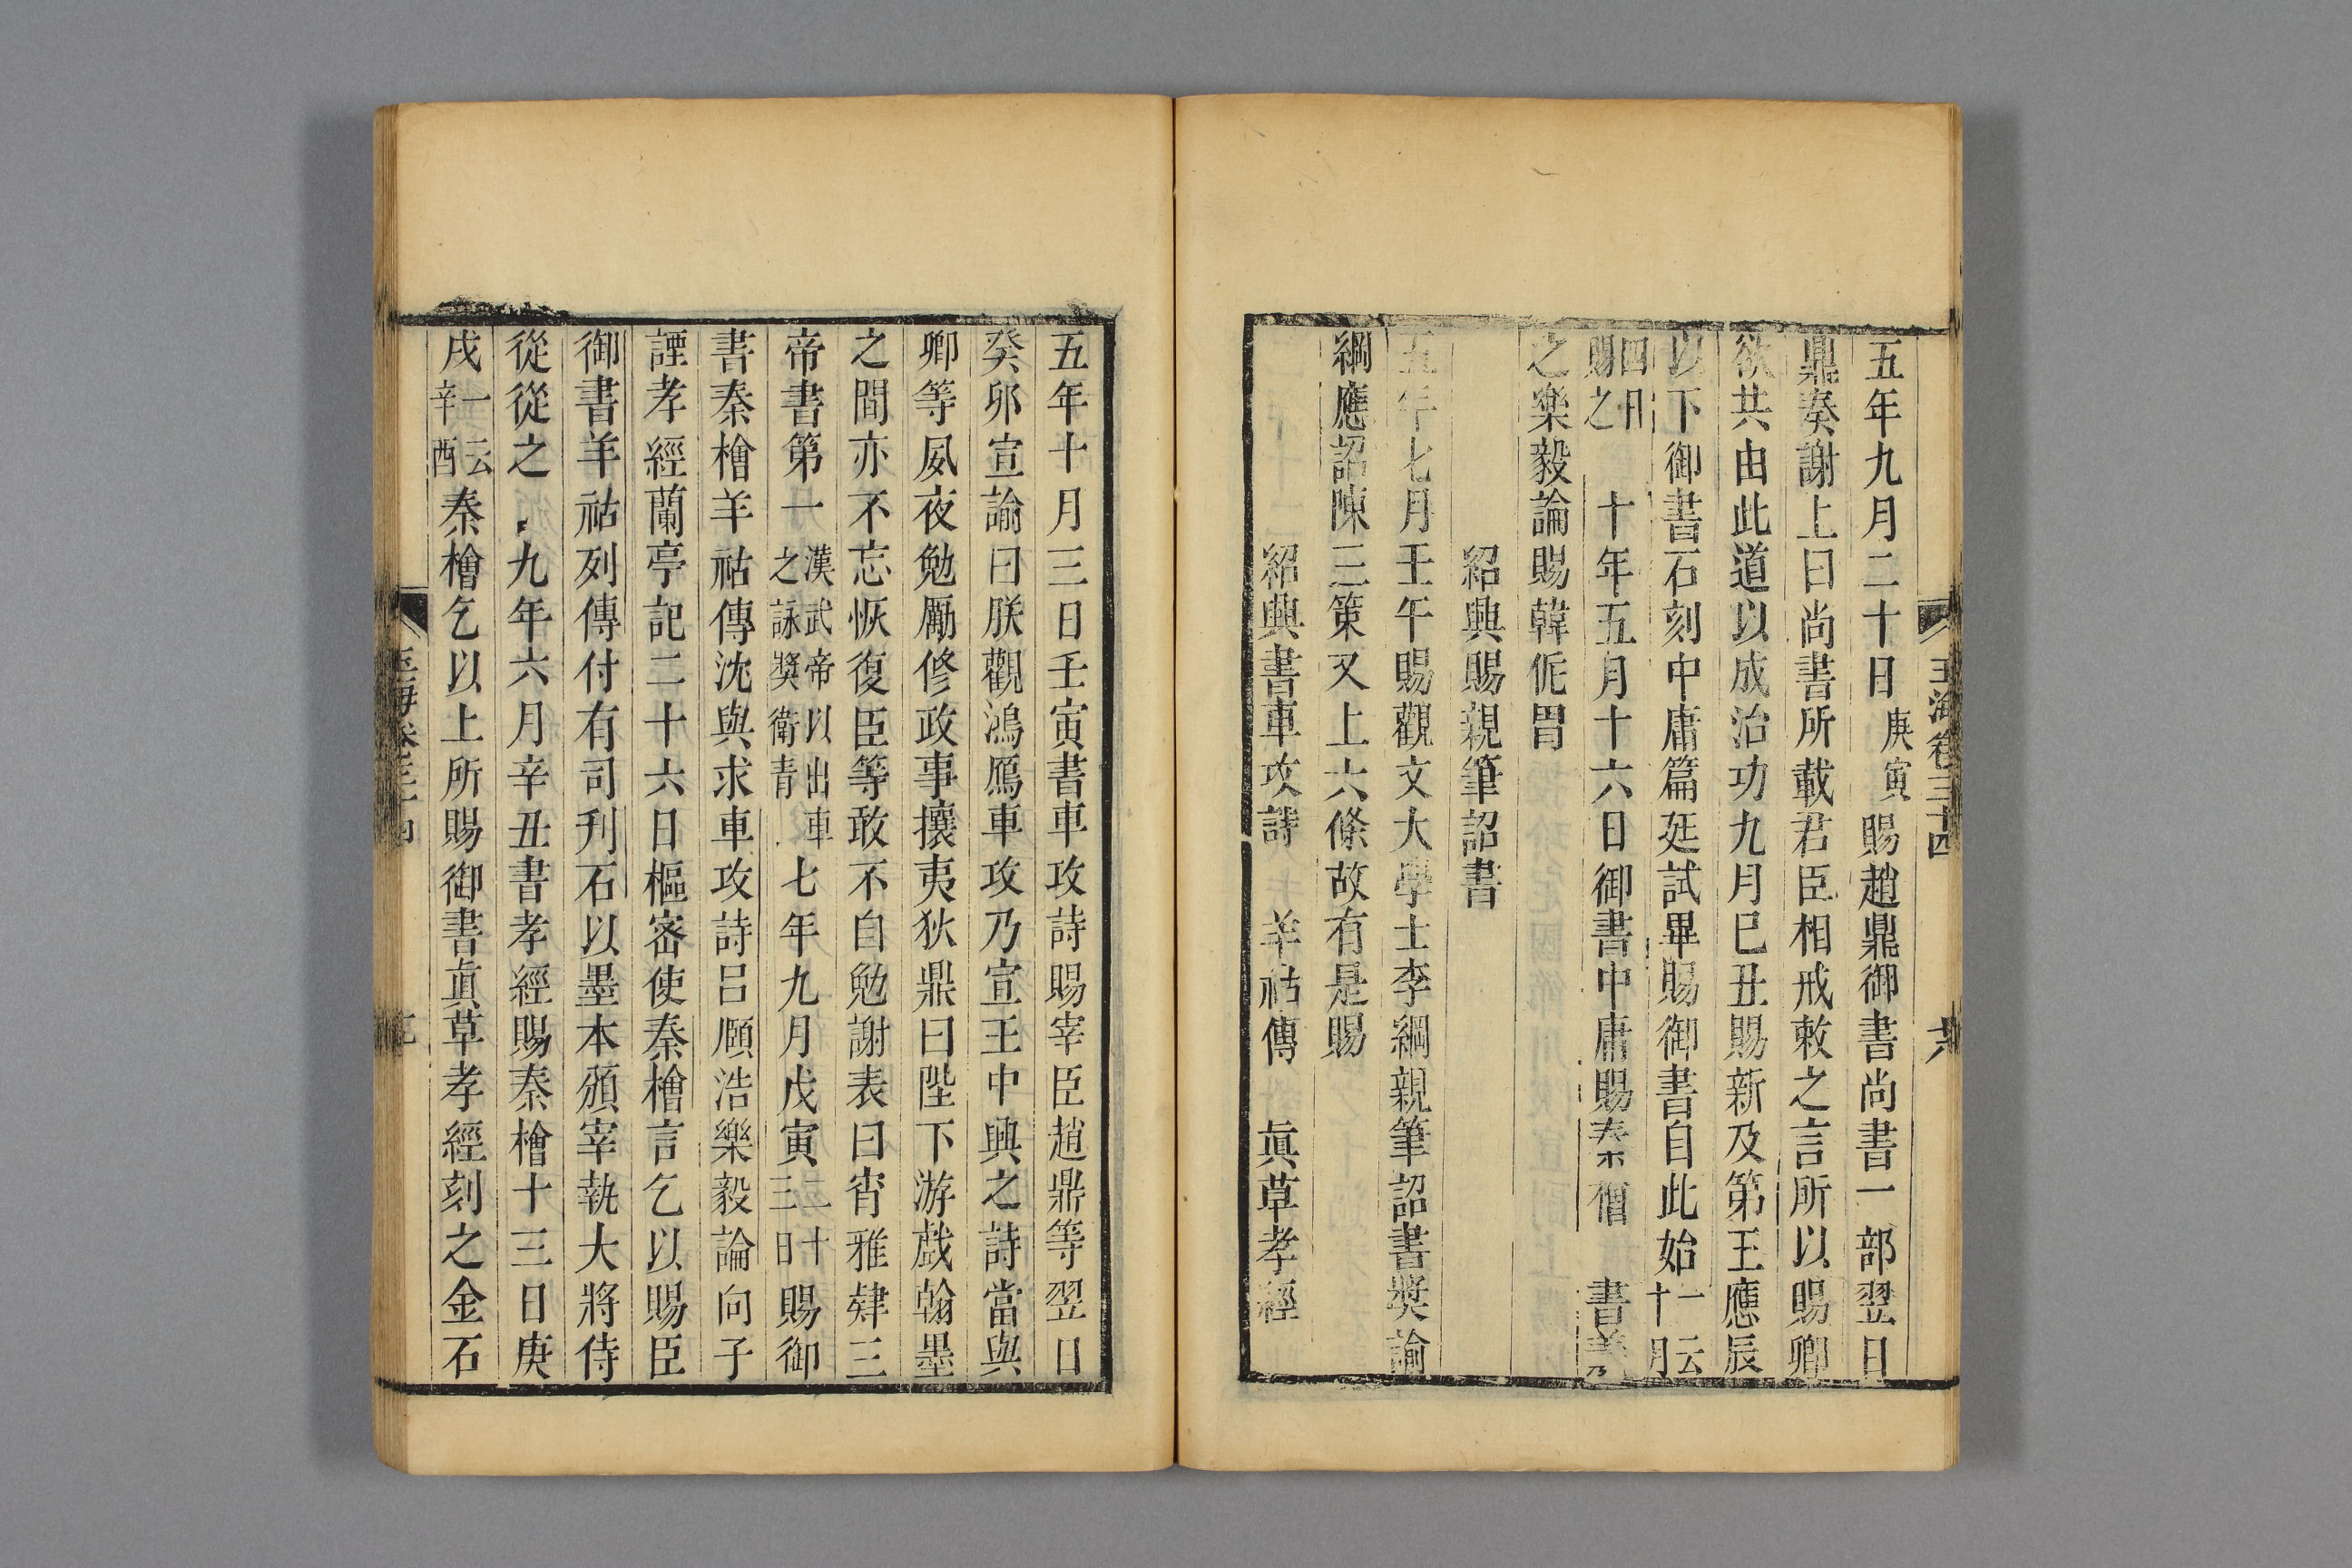 玉海卷三十四
五年九月二十日庚寅賜趙鼎御書尚書一部翌日
鼎奏謝上曰尚書所載君臣相戒敕之言所以賜卿
欲共由此道以成治功九月巳丑賜新及第王應辰
以下御書石刻中庸篇廷試畢賜御書自此始一云十月
四日賜之 十年五月十六日御書中庸賜秦檜 書羲乃
之樂毅論賜韓侂冑
紹興賜親筆詔書
五年七月壬午賜觀文大學士李綱親筆詔書獎諭
綱應詔陳三策又上六條故有是賜
紹興書車攻詩 羊祜傳 眞草孝經
五年十月三日壬寅書車攻詩賜宰臣趙鼎等翌日
癸卯宣諭曰朕觀鴻鴈車攻乃宣王中興之詩當與
卿等夙夜勉勵修政事攘夷狄鼎曰陛下游戲翰墨
之間亦不忘恢復臣等敢不自勉謝表曰宵雅肄三
帝書第一漢武帝以出車之詠獎衛青七年九月戊寅二十三日賜御
書秦檜羊祜傳沈與求車攻詩呂頤浩樂毅論向子
諲孝經蘭亭記二十六日樞密使秦檜言乞以賜臣
御書羊祜列傳付有司刋石以墨本頒宰執大將侍
從從之 九年六月辛丑書孝經賜秦檜十三日庚
戌一云辛酉秦檜乞以上所賜御書眞草孝經刻之金石